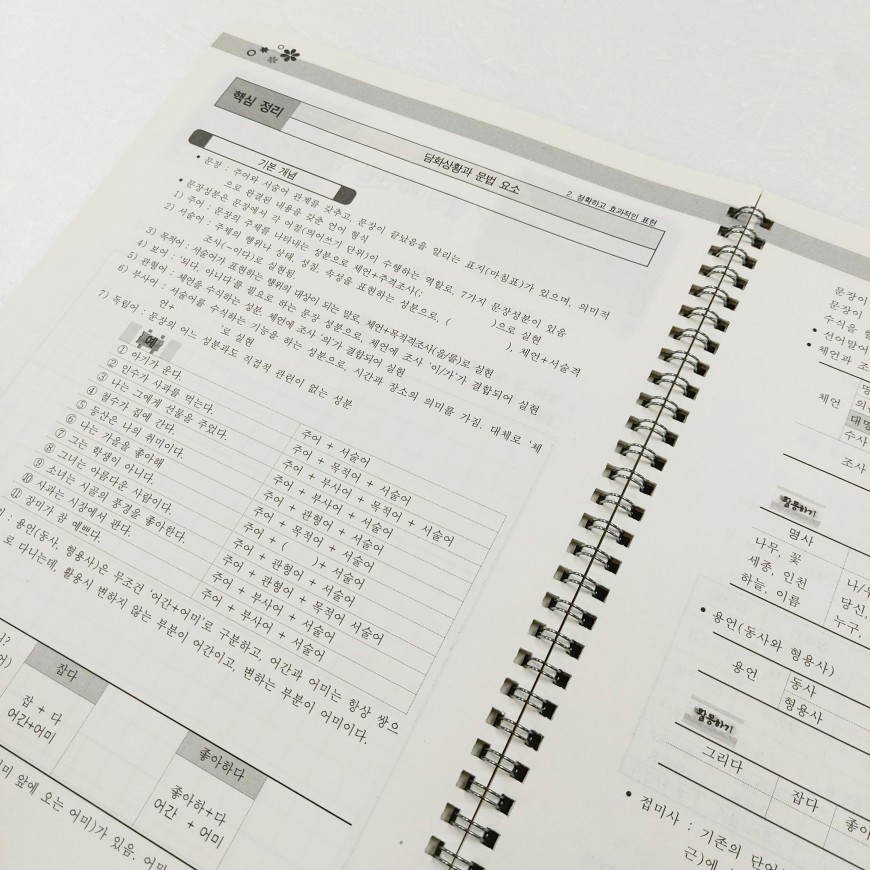 핵심 정리
담화상황과 문법 요소
2. 정확하고 효과적인 표현
기본 개념
• 문장 : 주어와 서술어 관계를 갖추고, 문장이 끝났음을 알리는 표지(마침표)가 있으며, 의미적
으로 완결된 내용을 갖춘 언어 형식
• 문장성분은 문장에서 각 어절(띄어쓰기 단위)이 수행하는 역할로, 7가지 문장성분이 있음
1) 주어 : 문장의 주체를 나타내는 성분으로 체언+주격조사(: )으로 실현
2) 서술어 : 주체의 행위나 상태, 성질, 속성을 표현하는 성분으로, ( ), 체언+서술격
조사(~이다)로 실현됨
3) 목적어: 서술어가 표현하는 행위의 대상이 되는 말로, 체언+목적격조사(을/를)로 실현
4) 보어 : '되다, 아니다'를 필요로 하는 문장 성분으로, 체언에 조사 '이/가'가 결합되어 실현
5) 관형어 : 체언을 수식하는 성분. 체언에 조사 '의'가 결합되어 실현
6) 부사어 : 서술어를 수식하는 기능을 하는 성분으로, 시간과 장소의 의미를 가짐. 대체로 '체
언+ '로 실현
7) 독립어 : 문장의 어느 성분과도 직접적 관련이 없는 성분
예
① 아기가 운다.
주어 + 서술어
② 민수가 사과를 먹는다.
주어 + 목적어 + 서술어
③ 나는 그에게 선물을 주었다.
주어 + 부사어 + 목적어 + 서술어
④ 철수가 집에 간다.
주어 + 부사어 + 서술어
⑤ 등산은 나의 취미이다.
주어 + 관형어 + 서술어
⑥ 나는 가을을 좋아해
주어 + 목적어 + 서술어
⑦ 그는 학생이 아니다.
주어 + ( )+ 서술어
⑧ 그녀는 아름다운 사람이다.
주어 + 관형어 + 서술어
⑨ 소녀는 시골의 풍경을 좋아한다.
주어 + 관형어 + 목적어 서술어
⑩ 사과는 시장에서 판다.
주어 + 부사어 + 서술어
⑪ 장미가 참 예쁘다.
주어 + 부사어 + 서술어
: 용언(동사, 형용사)은 무조건 '어간+어미'로 구분하고, 어간과 어미는 항상 쌍으
로 다니는데, 활용시 변하지 않는 부분이 어간이고, 변하는 부분이 어미이다.
잡다
좋아하다
잡 + 다
어간+어미
좋아하+다
어간 + 어미
앞에 오는 어미)가 있음.
문장이
문장이
수식을
• 선어말어
• 체언과 조
체언
대명
수사
조사
활동하기
명사
나무, 꽃
세종, 인천
하늘, 이름
나/
당신,
누구,
• 용언(동사와 형용사)
용언
동사
형용사
활동하기
그리다
잡다
좋아
• 접미사 : 기존의 단어
근)에